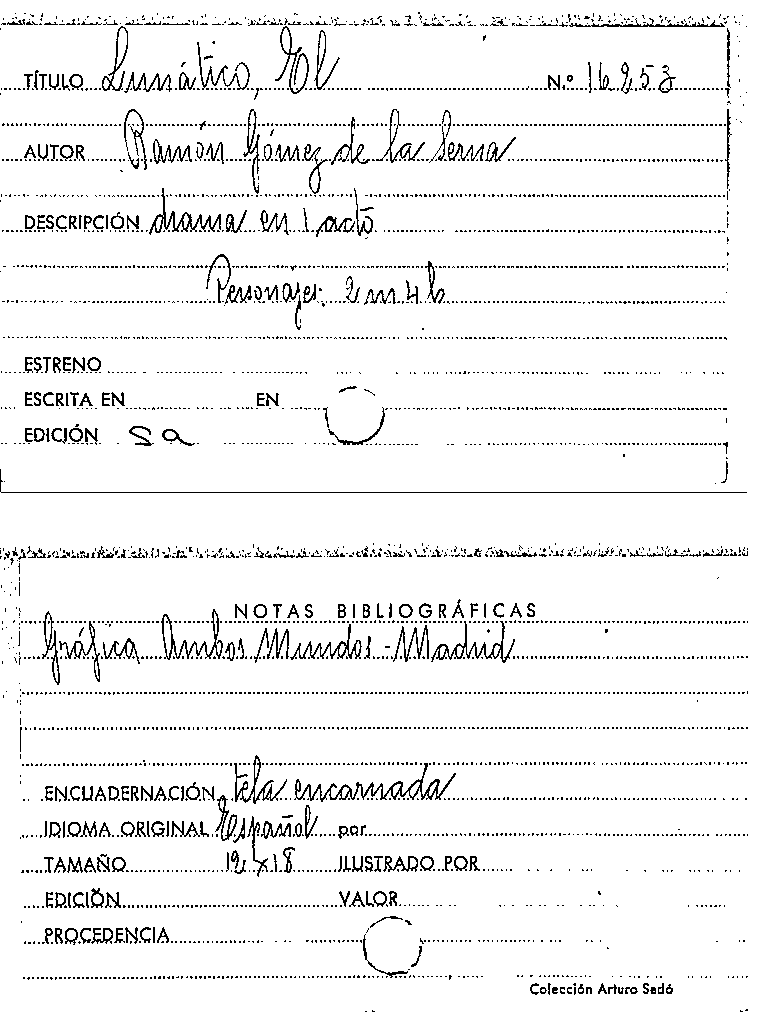 TÍTULO Lunático, El N.º 16253
AUTOR Ramón Gómez de la Serna
DESCRIPCIÓN drama en 1 acto
Personajes: 2 m 4 h
ESTRENO
ESCRITA EN EN
EDICIÓN Sa
NOTAS BIBLIOGRÁFICAS
Gráfica Ambos Mundos - Madrid
ENCUADERNACIÓN tela encarnada
IDIOMA ORIGINAL Español por
TAMAÑO 12 x 18 ILUSTRADO POR
EDICIÓN VALOR
PROCEDENCIA
Colección Arturo Sedó